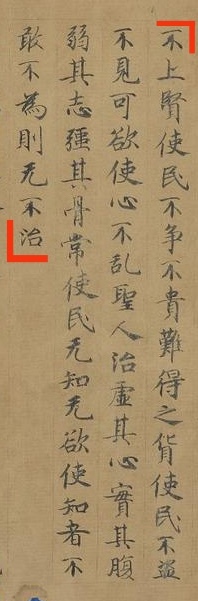 不上賢使民不争不貴難得之貨使民不盗
不見可欲使心不乱聖人治虚其心實其腹
弱其志强其骨常使民无知无欲使知者不
敢不為則无不治